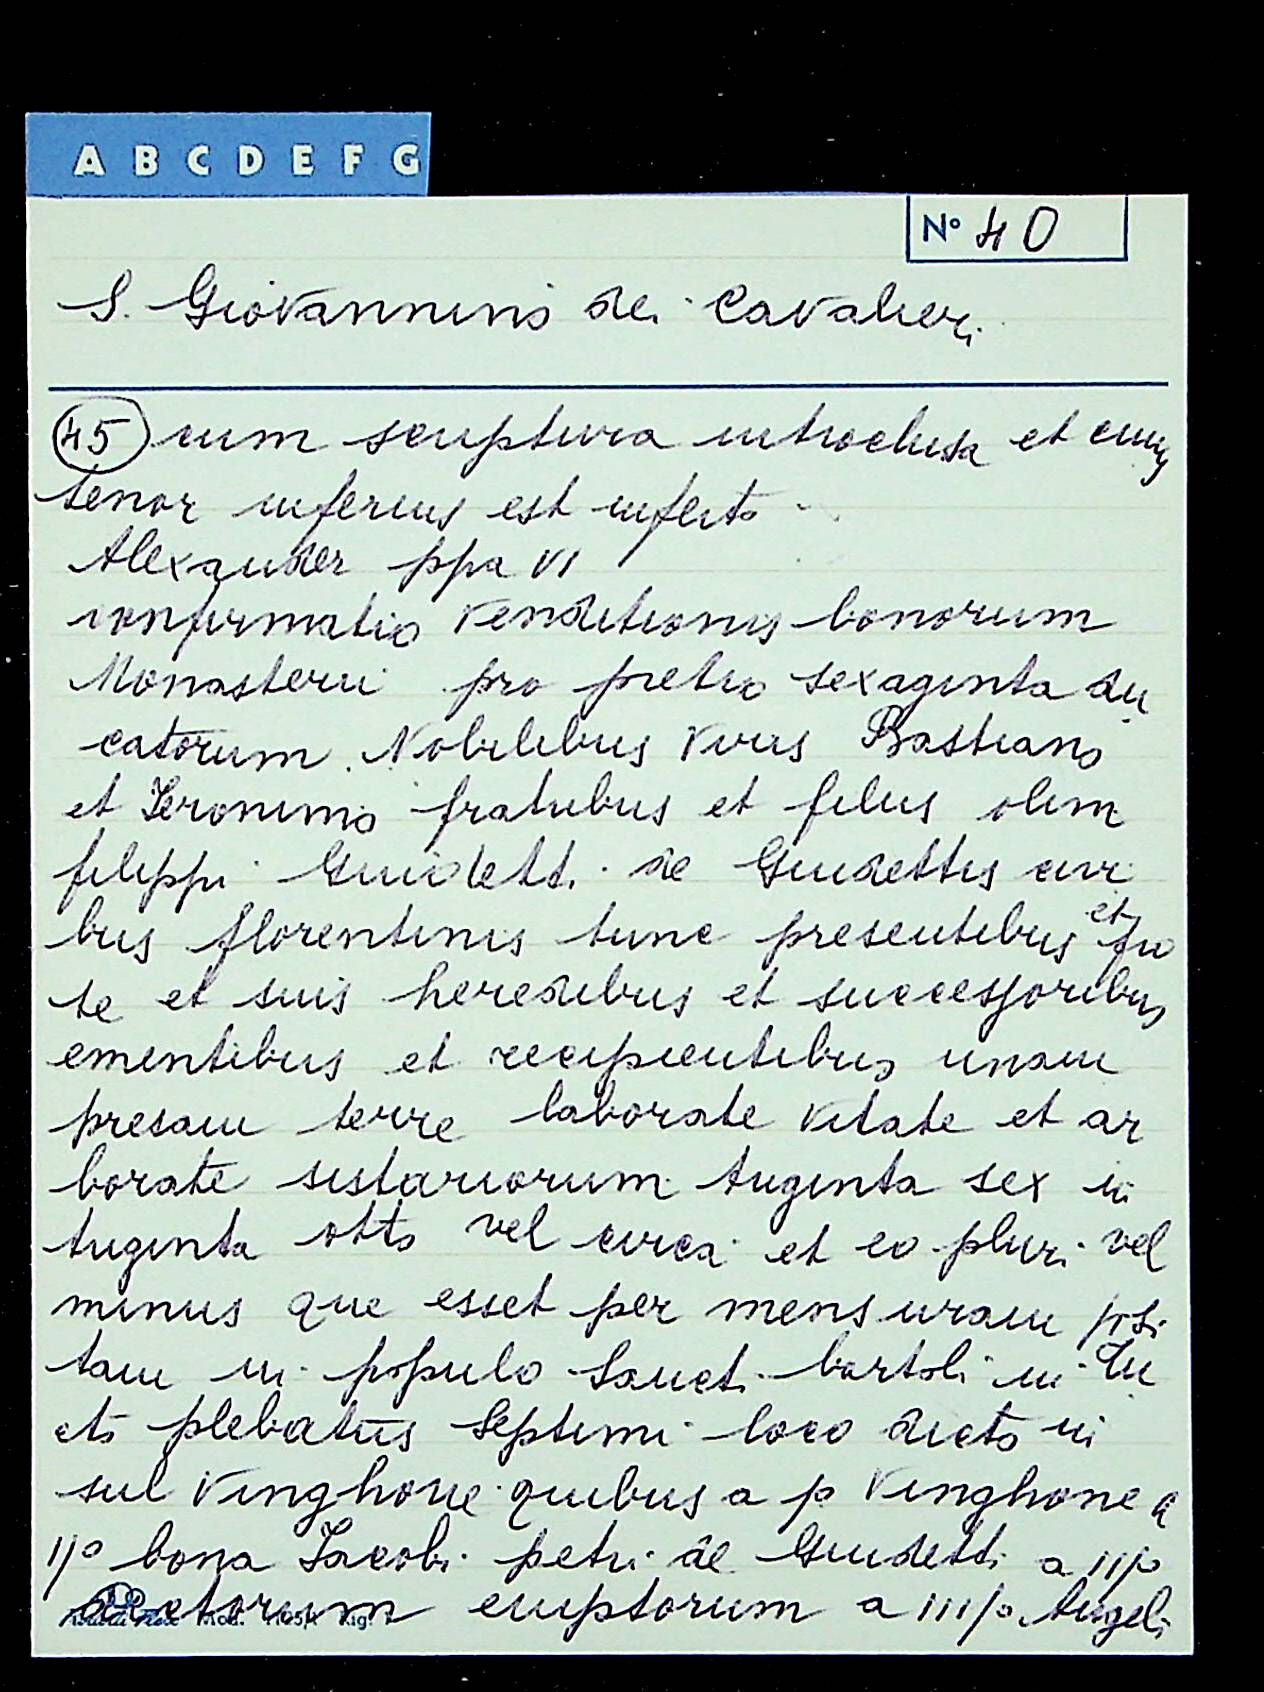 A B C D E F G
N° 40
S. Giovannino dei Cavalieri
45 cum scriptura introclusa et cuius
tenor inferius est inserto
Alexander ppa VI
confirmatio venditionis bonorum
Monasterii pro pretio sexaginta du
catorum Nobilibus viris Bastiano
et Ieronimo fratribus et filiis olim
filippi Guidetti de Guidettis civi
bus florentinis tunc presentibus et pro
se et suis heredibus et successoribus
ementibus et recipientibus unam
presam terre laborate vitate et ar
borate sistariorum triginta sex in
triginta otto vel circa et eo pluri vel
minus que esset per mensuram posi
tam in populo Sancti bartoli in Tu
eto plebatus Septimi loco dicto in
sul Vinghone quibus a po Vinghone a
IIo bona Jacobi petri de Guidetti a IIIo
dictorum emptorum a IIIIo Angeli